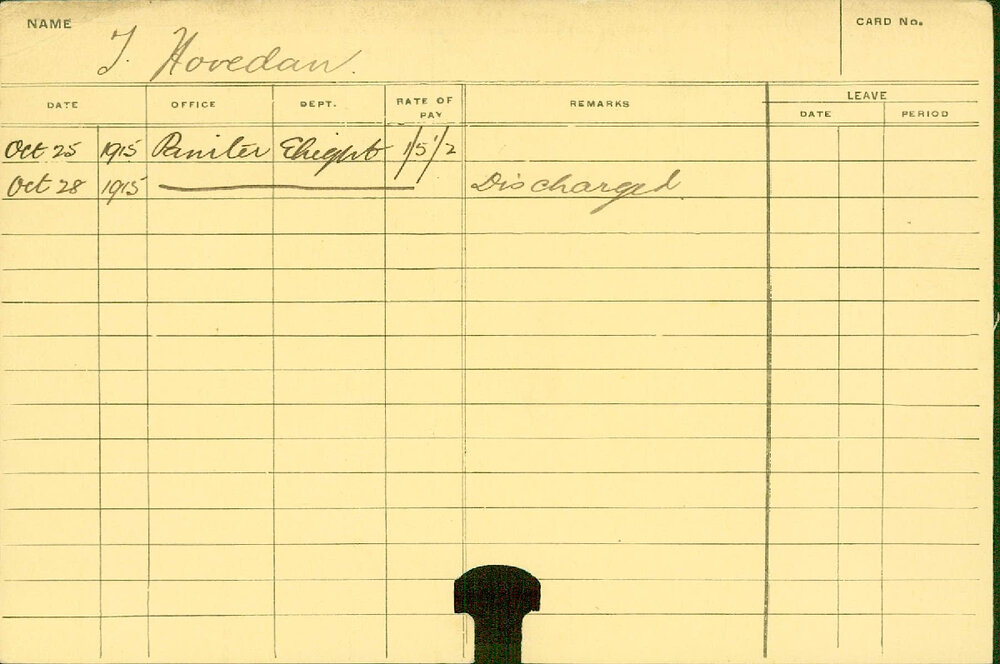 NAME
T. Hovedan.
CARD No.
DATE OFFICE DEPT. RATE OF PAY REMARKS LEAVE
DATE PERIOD
Oct 25 1915 Painter 1/5 1/2
Oct 28 1915 Discharged